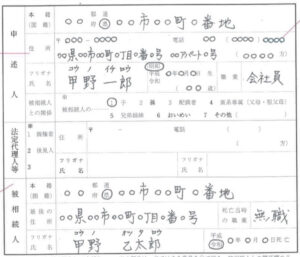 申述人
本籍（国籍） 都道府県 ○○ ○○市○○町○番地
住所 〒○○○-○○○○ 電話 ○○○（○○○）○○○○
○○県○○市○○町○丁目○番○号 ○○アパート○号
フリガナ コウノ イチロウ
氏名 甲野一郎
昭和 平成 令和 ○年○月○日生
職業 会社員
被相続人との関係
被相続人の……
1 子 2 孫 3 配偶者 4 直系尊属（父母・祖父母）
5 兄弟姉妹 6 おいめい 7 その他（ ）
法定代理人等
1 親権者
2 後見人
3
住所 〒 - 電話 （ ）
フリガナ
氏名
フリガナ
氏名
被相続人
本籍（国籍） 都道府県 ○○ ○○市○○町○番地
最後の住所 ○○県○○市○○町○丁目○番○号
死亡当時の職業 無職
フリガナ コウノ オツタロウ
氏名 甲野 乙太郎
平成 令和 ○年○月○日死亡